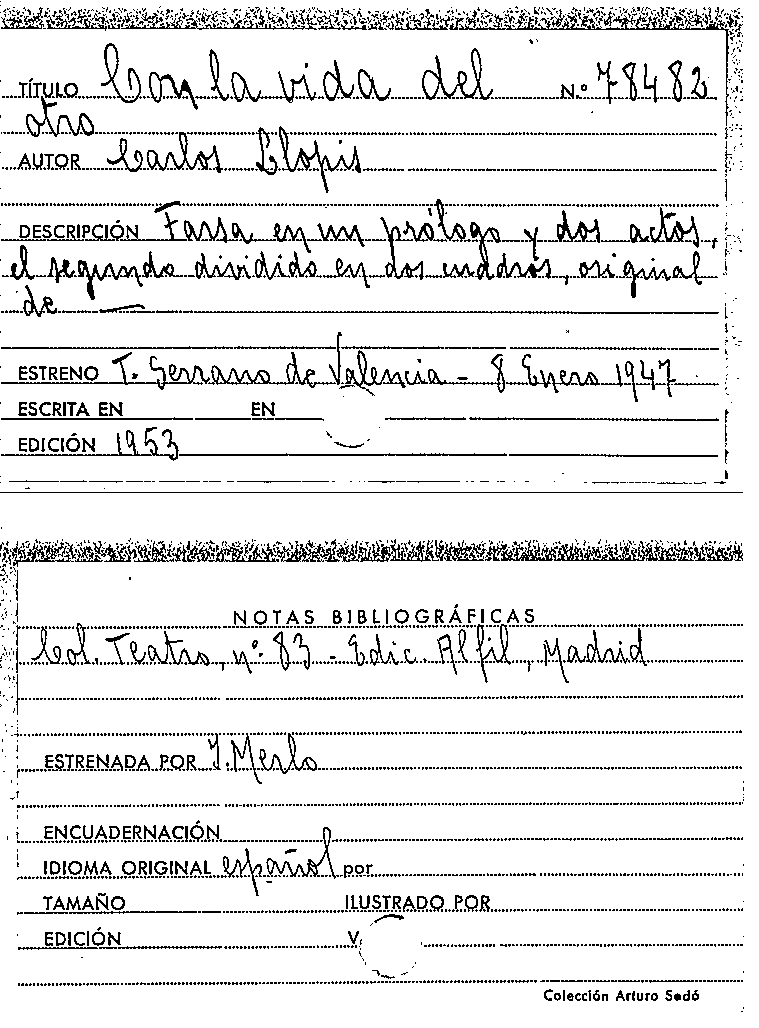 TÍTULO Con la vida del N.º 78482
otro
AUTOR Carlos Llopis
DESCRIPCIÓN Farsa en un prólogo y dos actos,
el segundo dividido en dos cuadros, original
de —
ESTRENO T. Serrano de Valencia - 8 Enero 1947
ESCRITA EN EN
EDICIÓN 1953
NOTAS BIBLIOGRÁFICAS
Col. Teatro, nº 83 - Edic. Alfil, Madrid
ESTRENADA POR I. Merlo
ENCUADERNACIÓN
IDIOMA ORIGINAL español por
TAMAÑO ILUSTRADO POR
EDICIÓN V.
Colección Arturo Sedó